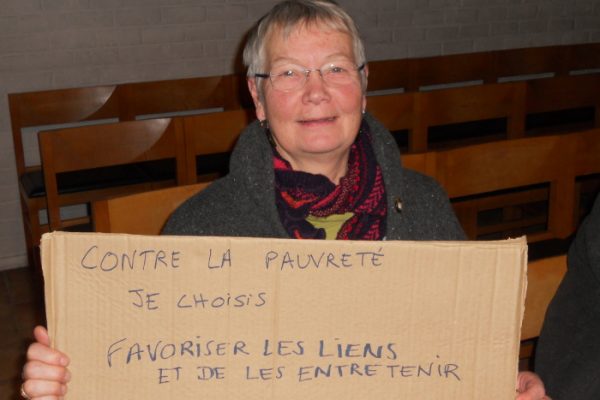 CONTRE LA PAUVRETÉ
JE CHOISIS
FAVORISER LES LIENS
ET DE LES ENTRETENIR